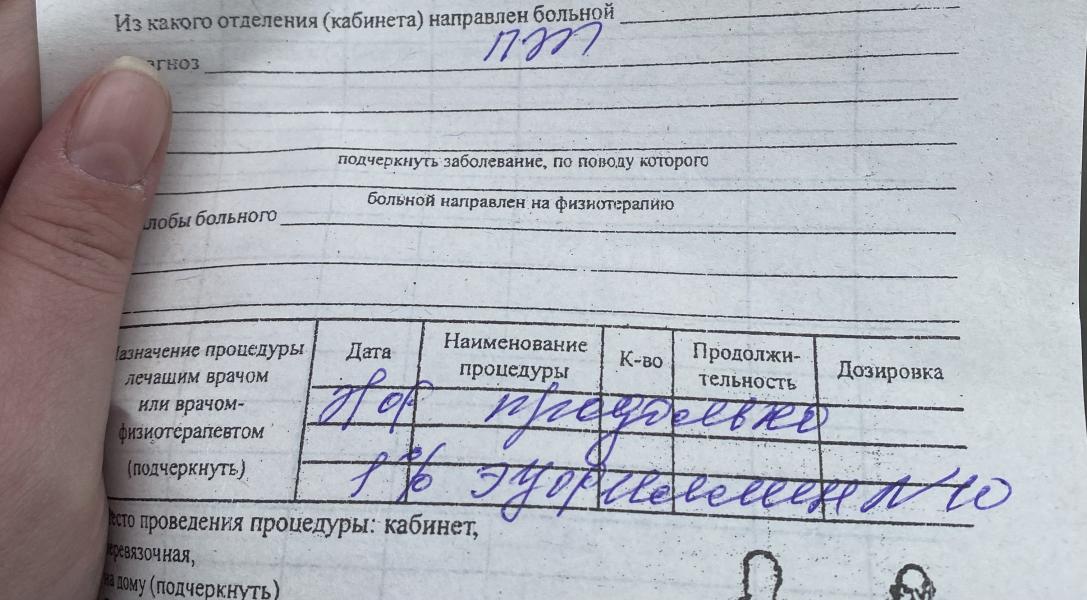 Из какого отделения (кабинета) направлен больной
агноз
подчеркнуть заболевание, по поводу которого
больной направлен на физиотерапию
лобы больного
азначение процедуры лечащим врачом или врачом-физиотерапевтом (подчеркнуть)
Дата
Наименование процедуры
К-во
Продолжи-тельность
Дозировка
продольно
1% эуфиллин №10
есто проведения процедуры: кабинет,
еревязочная,
на дому (подчеркнуть)